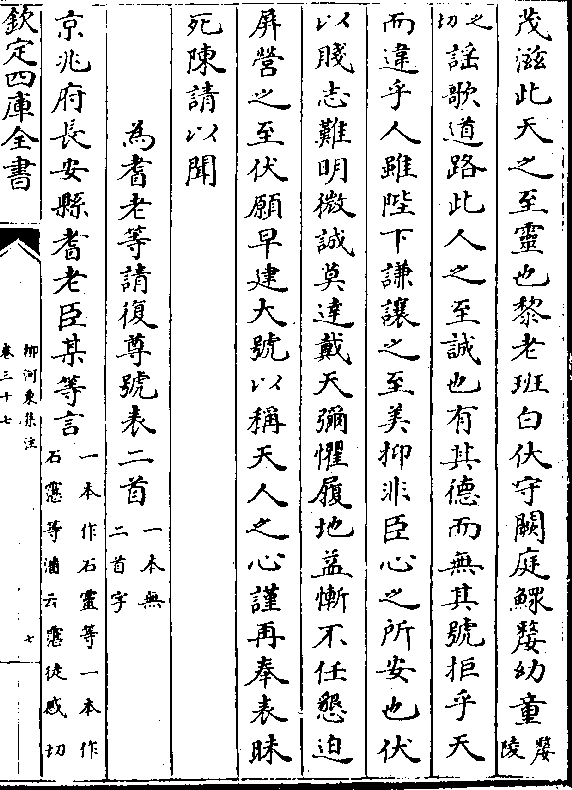 茂滋此天之至靈也黎老班白伏守闕庭鰥嫠幼童嫠陵
之切謡歌道路此人之至誠也有其德而無其號拒乎天
而違乎人雖陛下謙讓之至美抑非臣心之所安也伏
以賤志難明微誠莫達戴天彌懼履地益慚不任懇迫
屏營之至伏願早建大號以稱天人之心謹再奉表昧
死陳請以聞
為耆老等請復尊號表二首一本無二首字
京兆府長安縣耆老臣某等言一本作石靈等一本作石霮等潘云霮徒感切
欽定四庫全書
柳河東集注
卷三十七
七